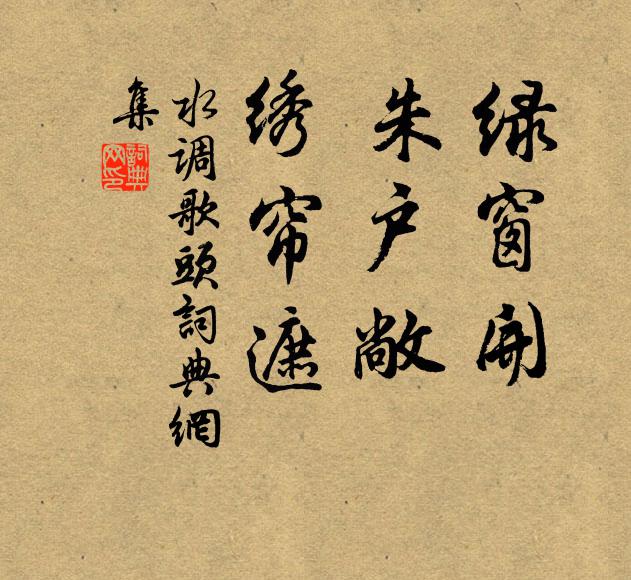 绿窗開
朱户敞
绣帘遮
水调歌頭詞典網
集
詞典網印